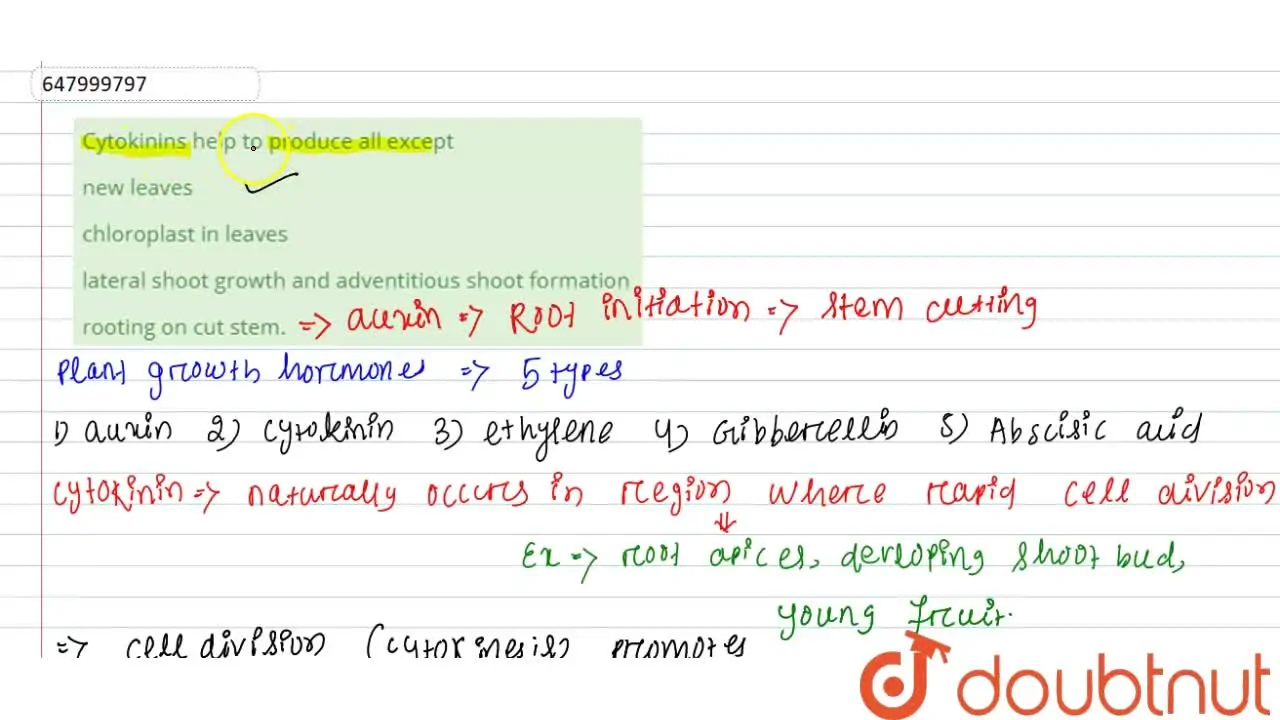 647999797
Cytokinins help to produce all except
new leaves
chloroplast in leaves
lateral shoot growth and adventitious shoot formation
rooting on cut stem. => auxin => Root initiation => stem cutting
Plant growth hormones => 5 types
1) auxin 2) cytokinin 3) ethylene 4) Gibbercellin 5) Abscisic acid
cytokinin => naturally occurs in region where rapid cell division
Ex => root apices, developing shoot bud,
young fruit.
=> cell division (cytokinesis) promotes
doubtnut